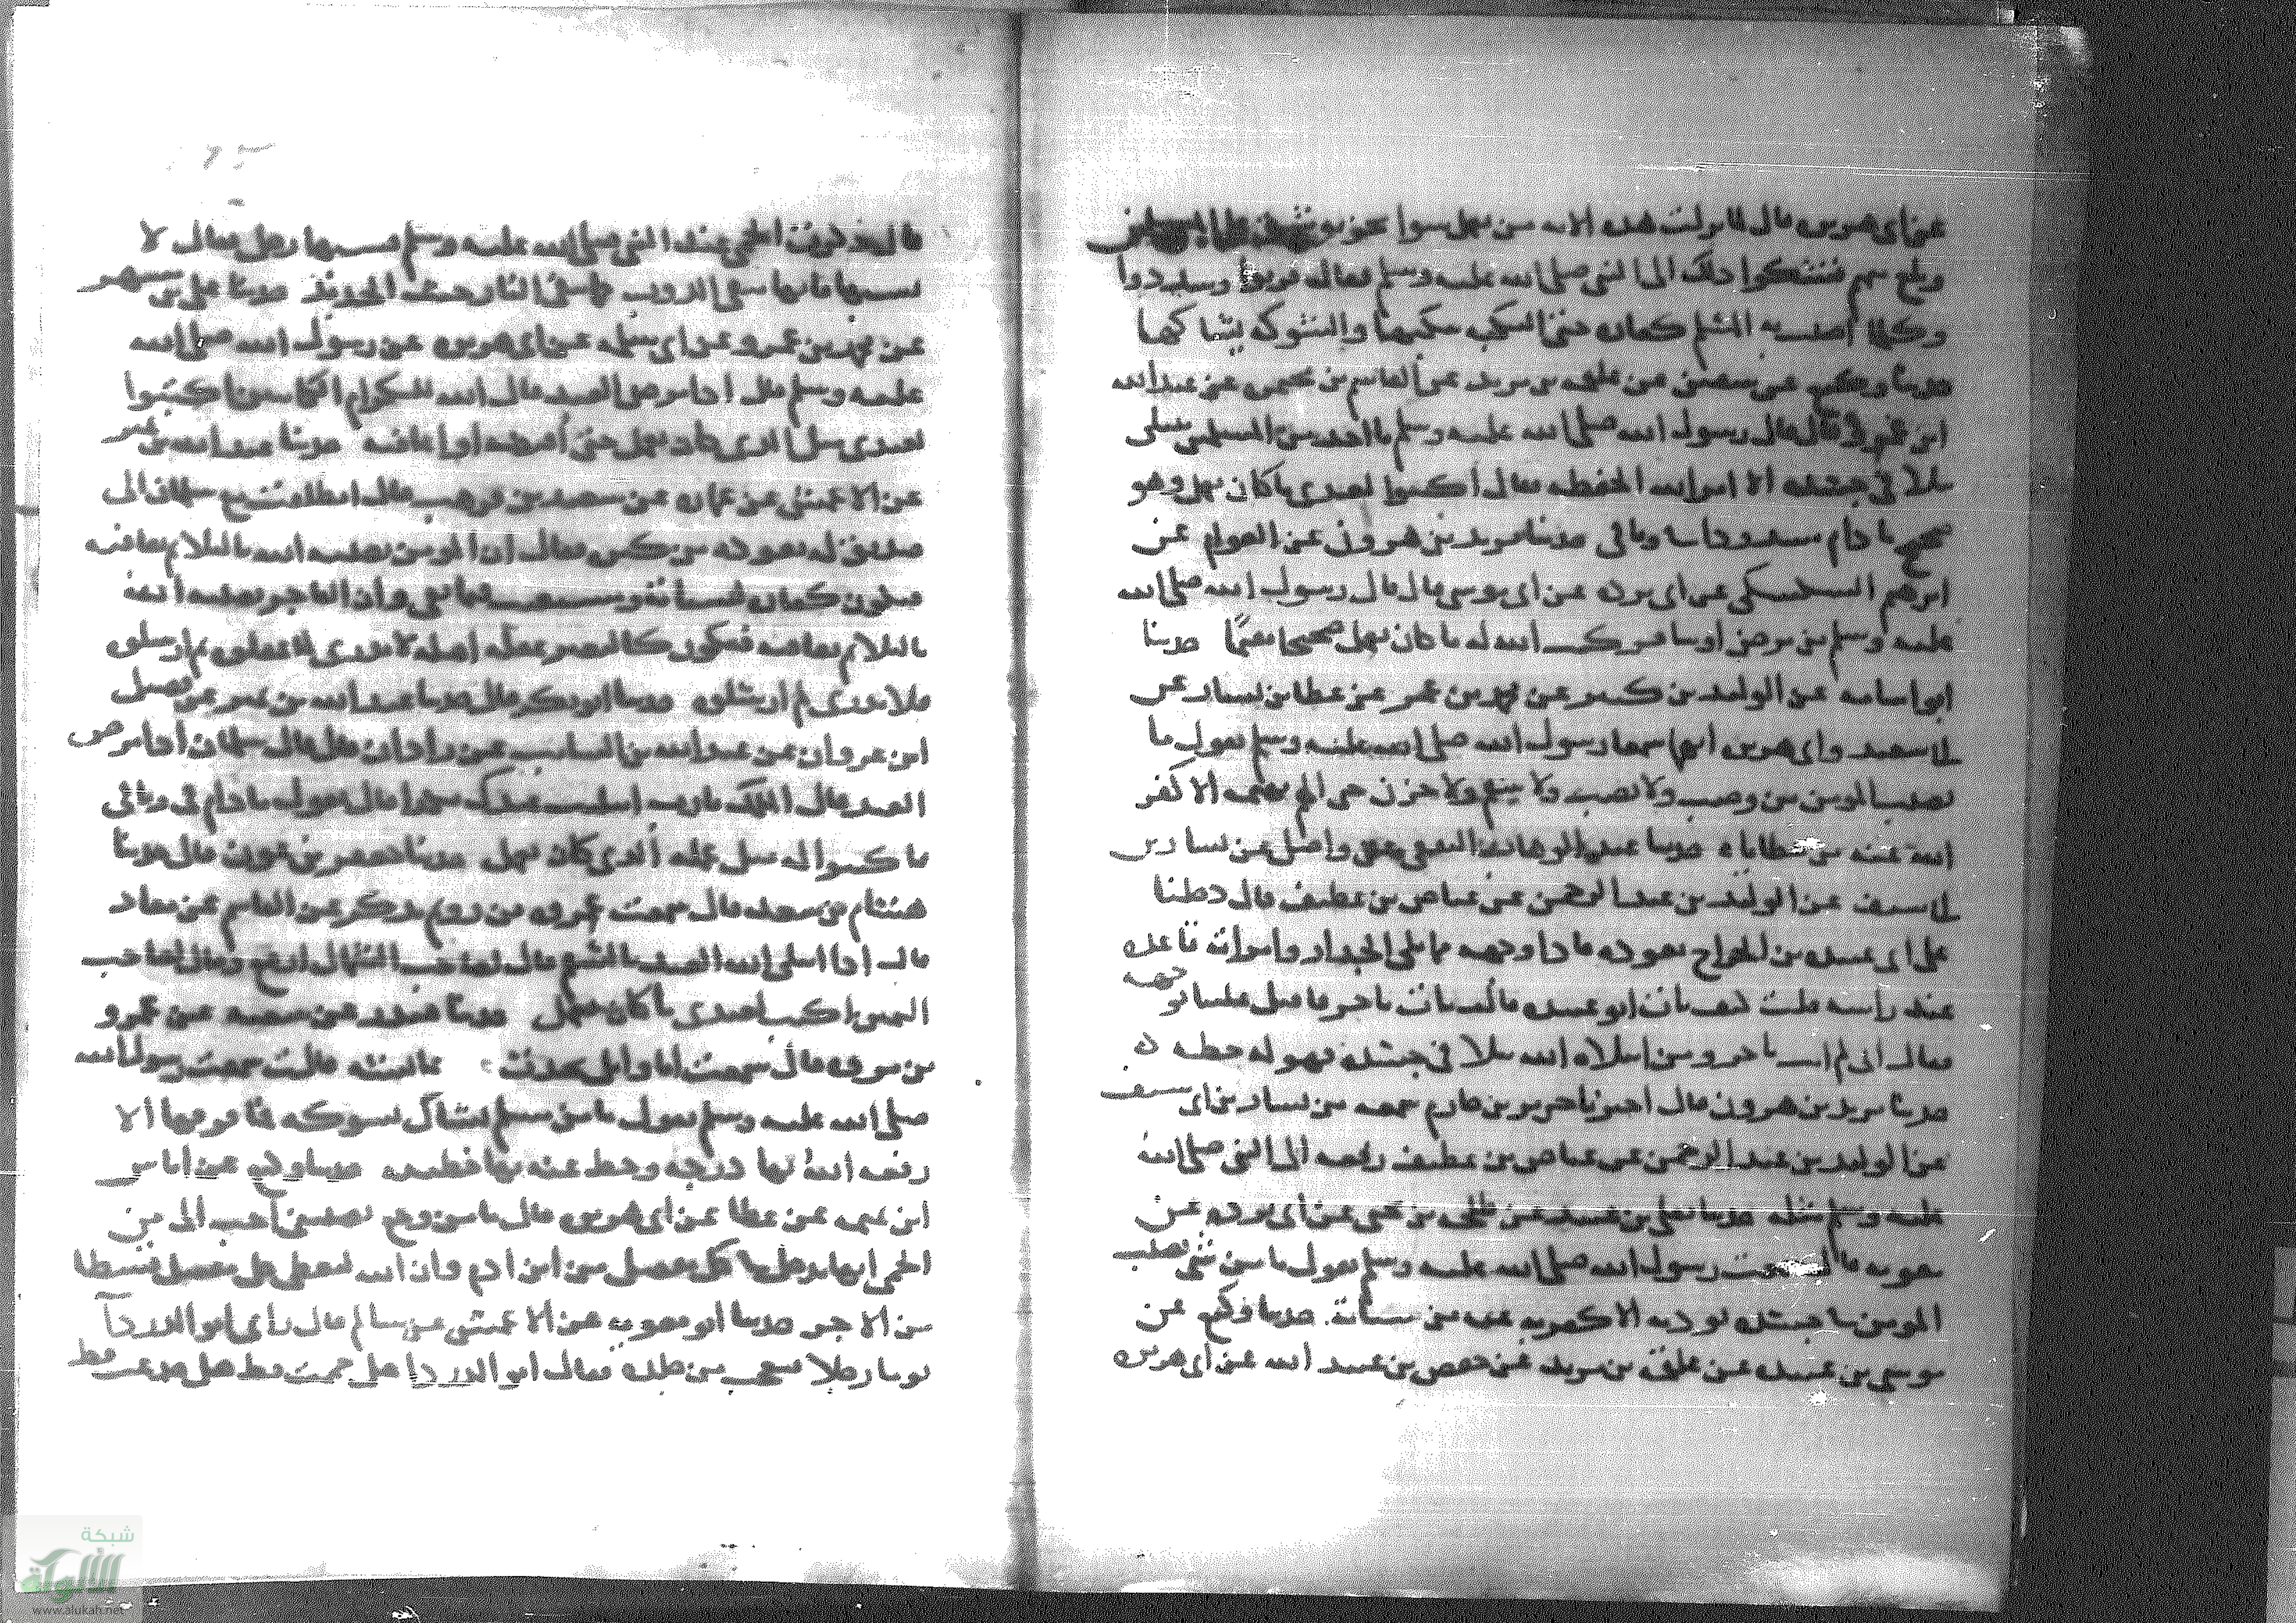 عن ابي هريرة قال لما نزلت هذه الاية من يعمل سوءا يجز به شق على المسلمين
وبلغ منهم فشكوا ذلك الى النبي صلى الله عليه وسلم فقال قاربوا وسددوا
وكلما اصيب به المسلم كفارة حتى النكبة ينكبها والشوكة يشاكها
حدثنا وكيع عن سفين عن علقمة بن مرثد عن القاسم بن مخيمرة عن عبد الله
ابن عمرو قال قال رسول الله صلى الله عليه وسلم ما احد من المسلمين يبتلى
ببلاء في جسده الا امر الله الحفظة فقال اكتبوا لعبدي ما كان يعمل وهو
صحيح ما دام مشدودا في وثاقي حدثنا يزيد بن هرون عن العوام عن
ابرهيم السكسكي عن ابي بردة عن ابي موسى قال قال رسول الله صلى الله
عليه وسلم من مرض او سافر كتب الله له ما كان يعمل صحيحا مقيما حدثنا
ابو اسامة عن الوليد بن كثير عن محمد بن عمرو عن عطا بن يسار عن
ابي سعيد وابي هريرة انهما سمعا رسول الله صلى الله عليه وسلم يقول ما
يصيب المومن من وصب ولا نصب ولا سقم ولا حزن حتى الهم يهمه الا كفر
الله عنه من خطاياه حدثنا عبد الوهاب الثقفي عن واصل عن بشار بن
ابي سيف عن الوليد بن عبد الرحمن عن عياض بن غطيف قال دخلنا
على ابي عبيدة بن الجراح نعوده فاذا وجهه مما يلي الجدار وامراته قاعدة
عند راسه قلت كيف بات ابو عبيدة قالت بات باجر فاقبل علينا بوجهه
فقال اني لم ابت باجر ومن ابتلاه الله ببلاء في جسده فهو له حطة
حدثنا يزيد بن هرون قال اخبرنا جرير بن حازم سمعه من بشار بن ابي سيف
عن الوليد بن عبد الرحمن عن عياض بن غطيف رفعه الى النبي صلى الله
عليه وسلم مثله حدثنا يعلى بن عبيد عن طلحة بن يحيى عن ابي بردة عن
معوية قال سمعت رسول الله صلى الله عليه وسلم يقول ما من شي يصيب
المومن في جسده يوذيه الا كفر به عنه من سياته حدثنا وكيع عن
موسى بن عبيدة عن علقمة بن مرثد عن حفص بن عبيد الله عن ابي هريرة
قال ذكرت الحمى عند النبي صلى الله عليه وسلم فسبها رجل فقال لا
تسبها فانها تنقي الذنوب كما تنقي النار خبث الحديد حدثنا علي بن مسهر
عن محمد بن عمرو عن ابي سلمة عن ابي هريرة عن رسول الله صلى الله
عليه وسلم قال اذا مرض العبد قال الله للكرام الكاتبين اكتبوا
لعبدي مثل الذي كان يعمل حتى اقبضه او اعافيه حدثنا عبد الله بن نمير
عن الاعمش عن عمارة عن سعيد بن وهب قال انطلقت مع سلمان الى
صديق له يعوده من كندة فقال ان المومن يصيبه الله بالبلاء ثم يعافيه
فيكون كفارة لسياته ومستعتبا فيما بقي وان الفاجر يصيبه الله
بالبلاء ثم يعافيه فيكون كالبعير عقله اهله لا يدري لم عقلوه ثم ارسلوه
فلا يدري لم ارسلوه حدثنا ابو بكر قال حدثنا عبد الله بن نمير عن فضيل
ابن غزوان عن عبد الله بن السايب عن زاذان قال قال سلمان اذا مرض
العبد قال الملك يا رب ابتليت عبدك بكذا قال فيقول ما دام في وثاقي
فاكتبوا له مثل عمله الذي كان يعمل حدثنا جعفر بن عون قال حدثنا
هشام بن سعد قال سمعت عروة بن رويم يذكر عن القاسم عن معاذ
قال اذا ابتلى الله العبد بالسقم قال لصاحب الشمال ارفع وقال لصاحب
اليمين اكتب لعبدي ما كان يعمل حدثنا غندر عن شعبة عن عمرو
بن مرة قال سمعت ابا وايل يحدث عن عائشة قالت سمعت رسول الله
صلى الله عليه وسلم يقول ما من مسلم يشاك بشوكة فما فوقها الا
رفعه الله بها درجة وحط عنه بها خطيئة حدثنا وكيع عن اياس
ابن ابي تميمة عن عطا عن ابي هريرة قال ما من وجع يصيبني احب الي من
الحمى انها تدخل في كل مفصل من ابن ادم وان الله ليعطي كل مفصل قسطا
من الاجر حدثنا ابو معوية عن الاعمش عن سالم قال راى ابو الدرداء
يوما رجلا فتعجب من جلده فقال ابو الدرداء هل حممت قط هل صدعت قط